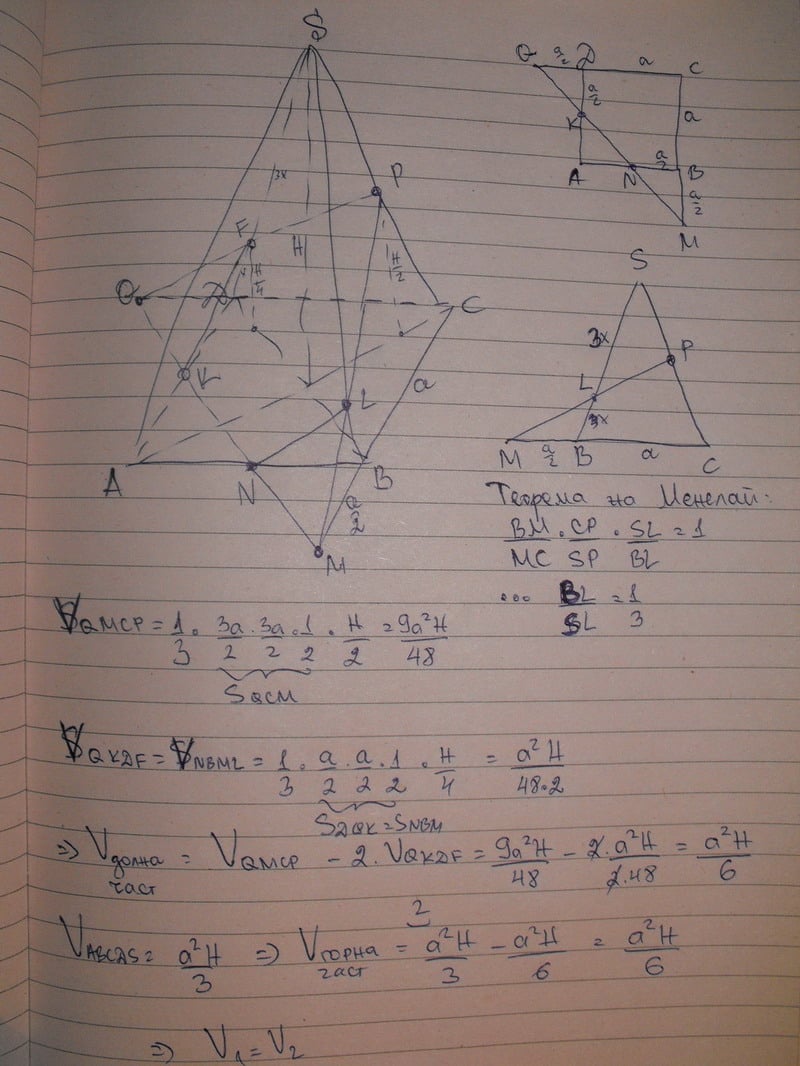 S
P
F
3x
H
H/2
H/4
Q
D
C
K
a
L
A
N
B
a/2
M
Q a/2 D a C
a/2
K
a
A N a/2 B
a/2
M
S
3x
P
L
x
M a/2 B a C
Теорема на Менелай:
BM/MC . CP/SP . SL/BL = 1
... BL/SL = 1/3
V QMCP = 1/3 . 3a/2 . 3a/2 . 1/2 . H/2 = 9a²H/48
S QCM
V QKDF = V NBML = 1/3 . a/2 . a/2 . 1/2 . H/4 = a²H/48.2
S DQK = S NBM
=> V долна част = V QMCP - 2. V QKDF = 9a²H/48 - 2.a²H/2.48 = a²H/6
V ABCDS = a²H/3 => V горна част = a²H/3 - a²H/6 = a²H/6
2
=> V₁ = V₂